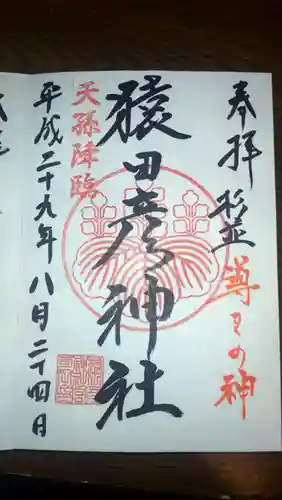 奉拝
杉並 導きの神
猿田彦神社
天孫降臨
平成二十九年八月二十四日